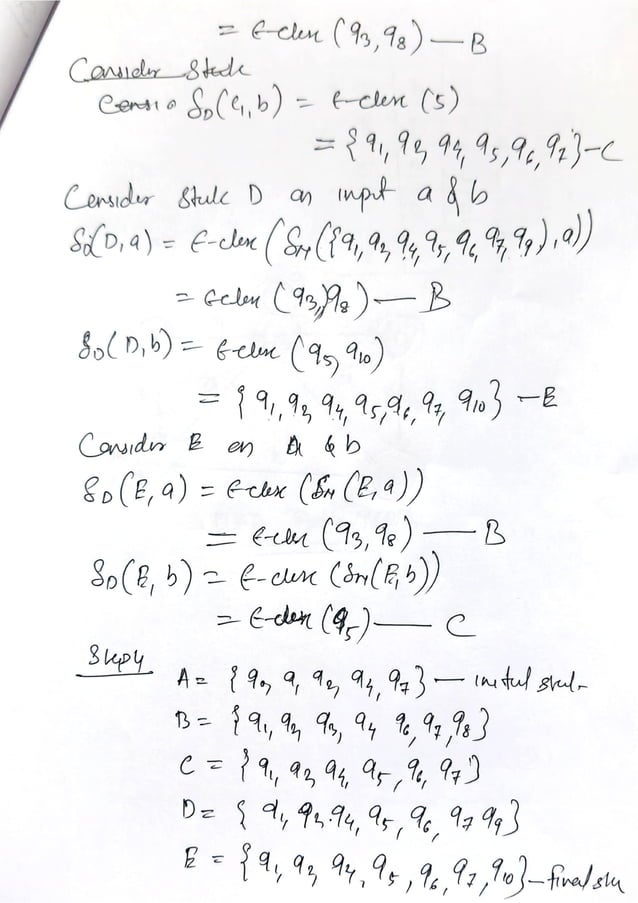 = ϵ-clex (q3, q8) — B
Consider State
Consi δD(C, b) = ϵ-clex (5)
= {q1, q2, q4, q5, q6, q7} — C
Consider State D on input a & b
δD(D, a) = ϵ-clex (δN({q1, q2, q4, q5, q6, q7, q9}, a))
= ϵclex (q3, q8) — B
δD(D, b) = ϵ-clex (q5, q10)
= {q1, q2, q4, q5, q6, q7, q10} — E
Consider E on a & b
δD(E, a) = ϵ-clex (δN (E, a))
= ϵ-clex (q3, q8) — B
δD(E, b) = ϵ-clex (δN(E, b))
= ϵ-clex (q5) — C
Step4
A = {q0, q1, q2, q4, q7} — initial state
B = {q1, q2, q3, q4 q6, q7, q8}
C = {q1, q2 q4, q5, q6, q7}
D = {q1, q2. q4, q5, q6, q7 q9}
E = {q1, q2, q4, q5, q6, q7, q10} — final sta